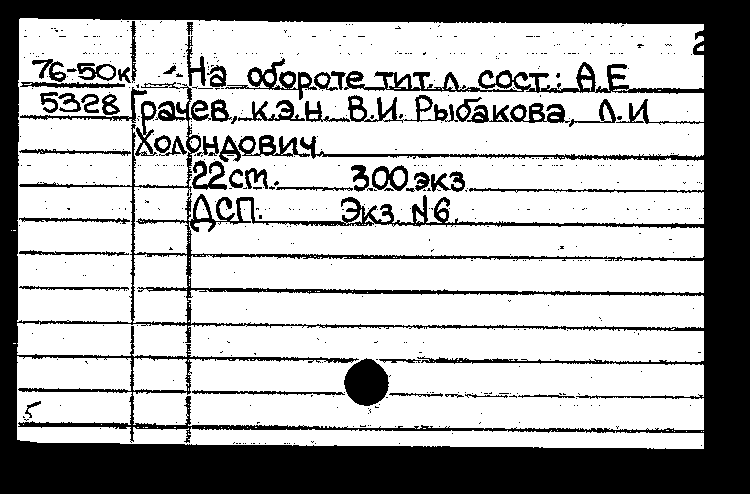 2
76-50к На обороте тит. л. сост.: А.Е
5328 Грачев, к.э.н. В.И. Рыбакова, Л.И
Холондович.
22 ст. 300 экз
ДСП. Экз. №6.
5